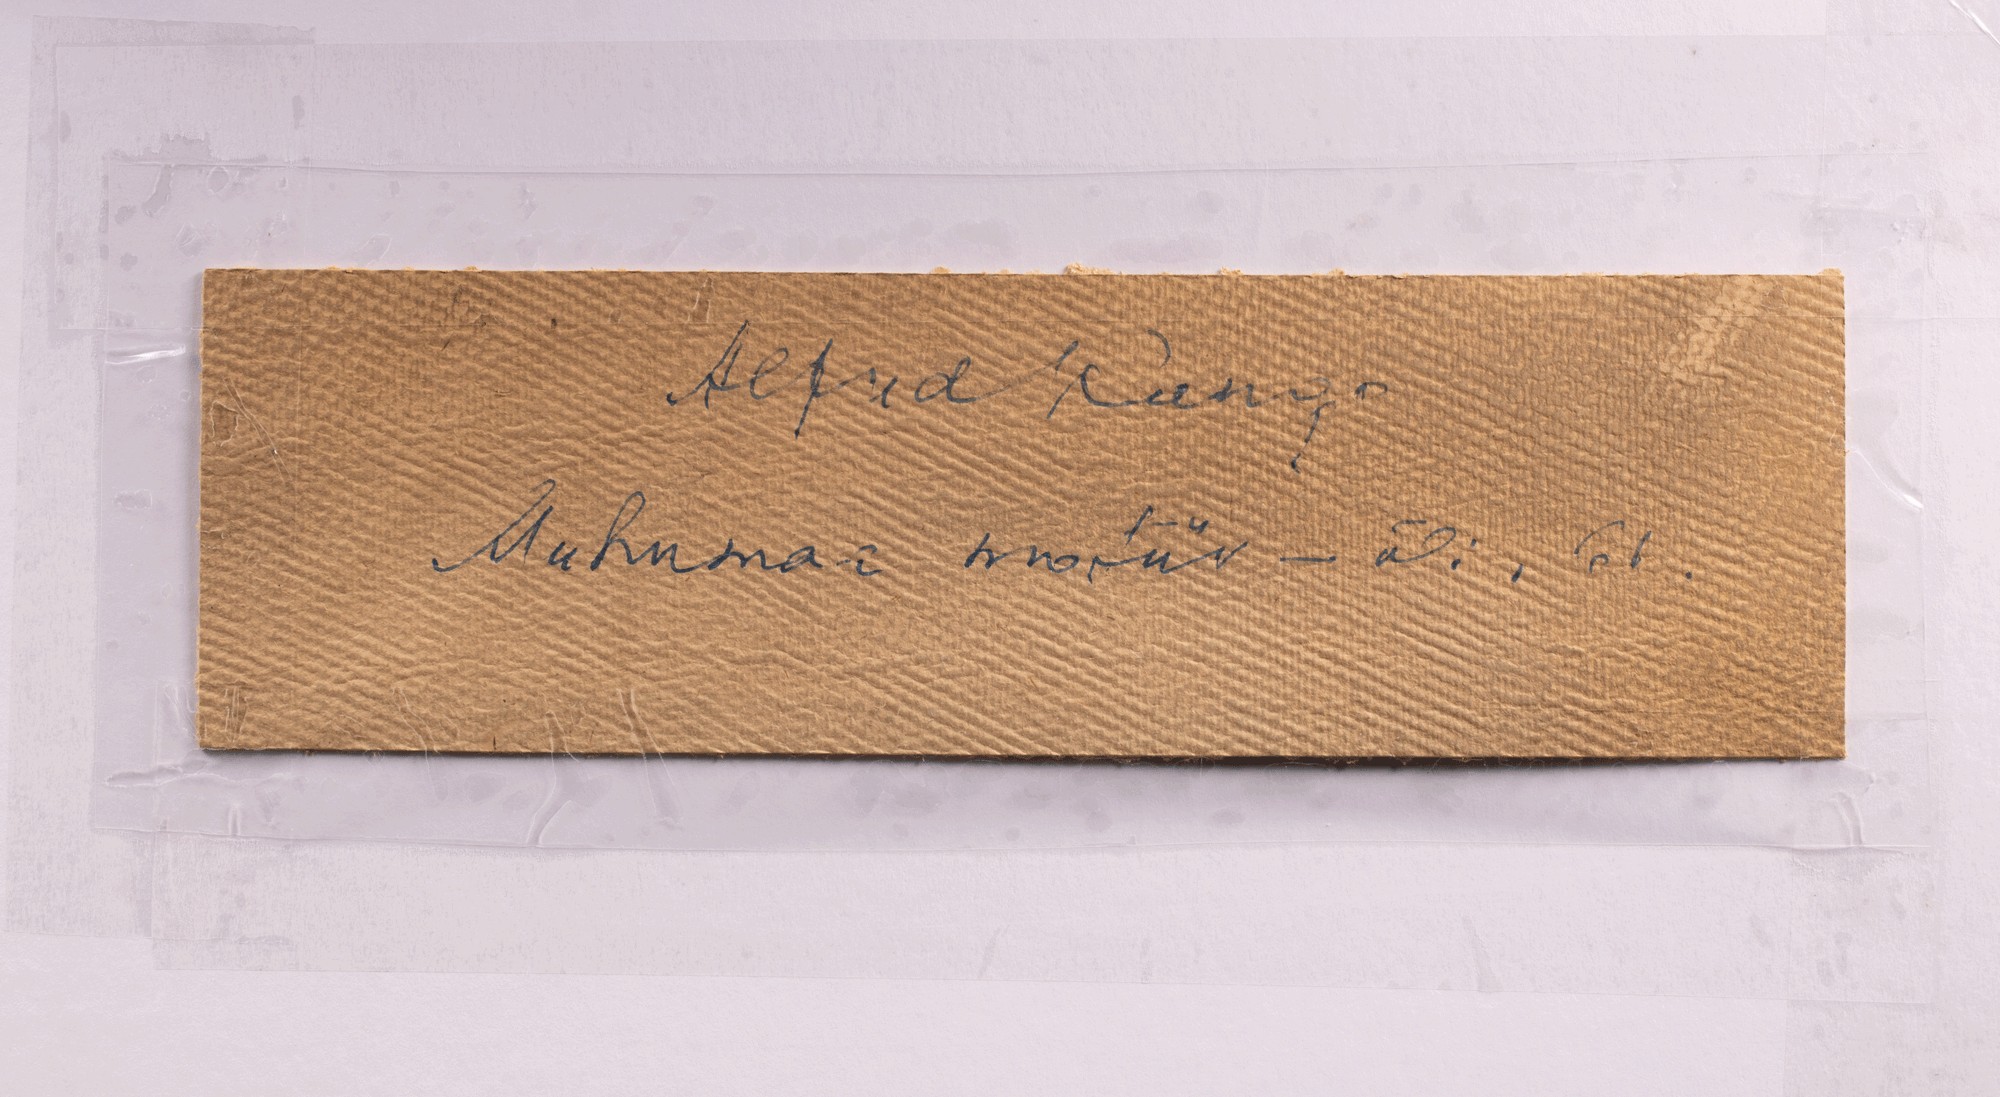 Alfred Kongo
Muhumaa motiiv – õli, 61.